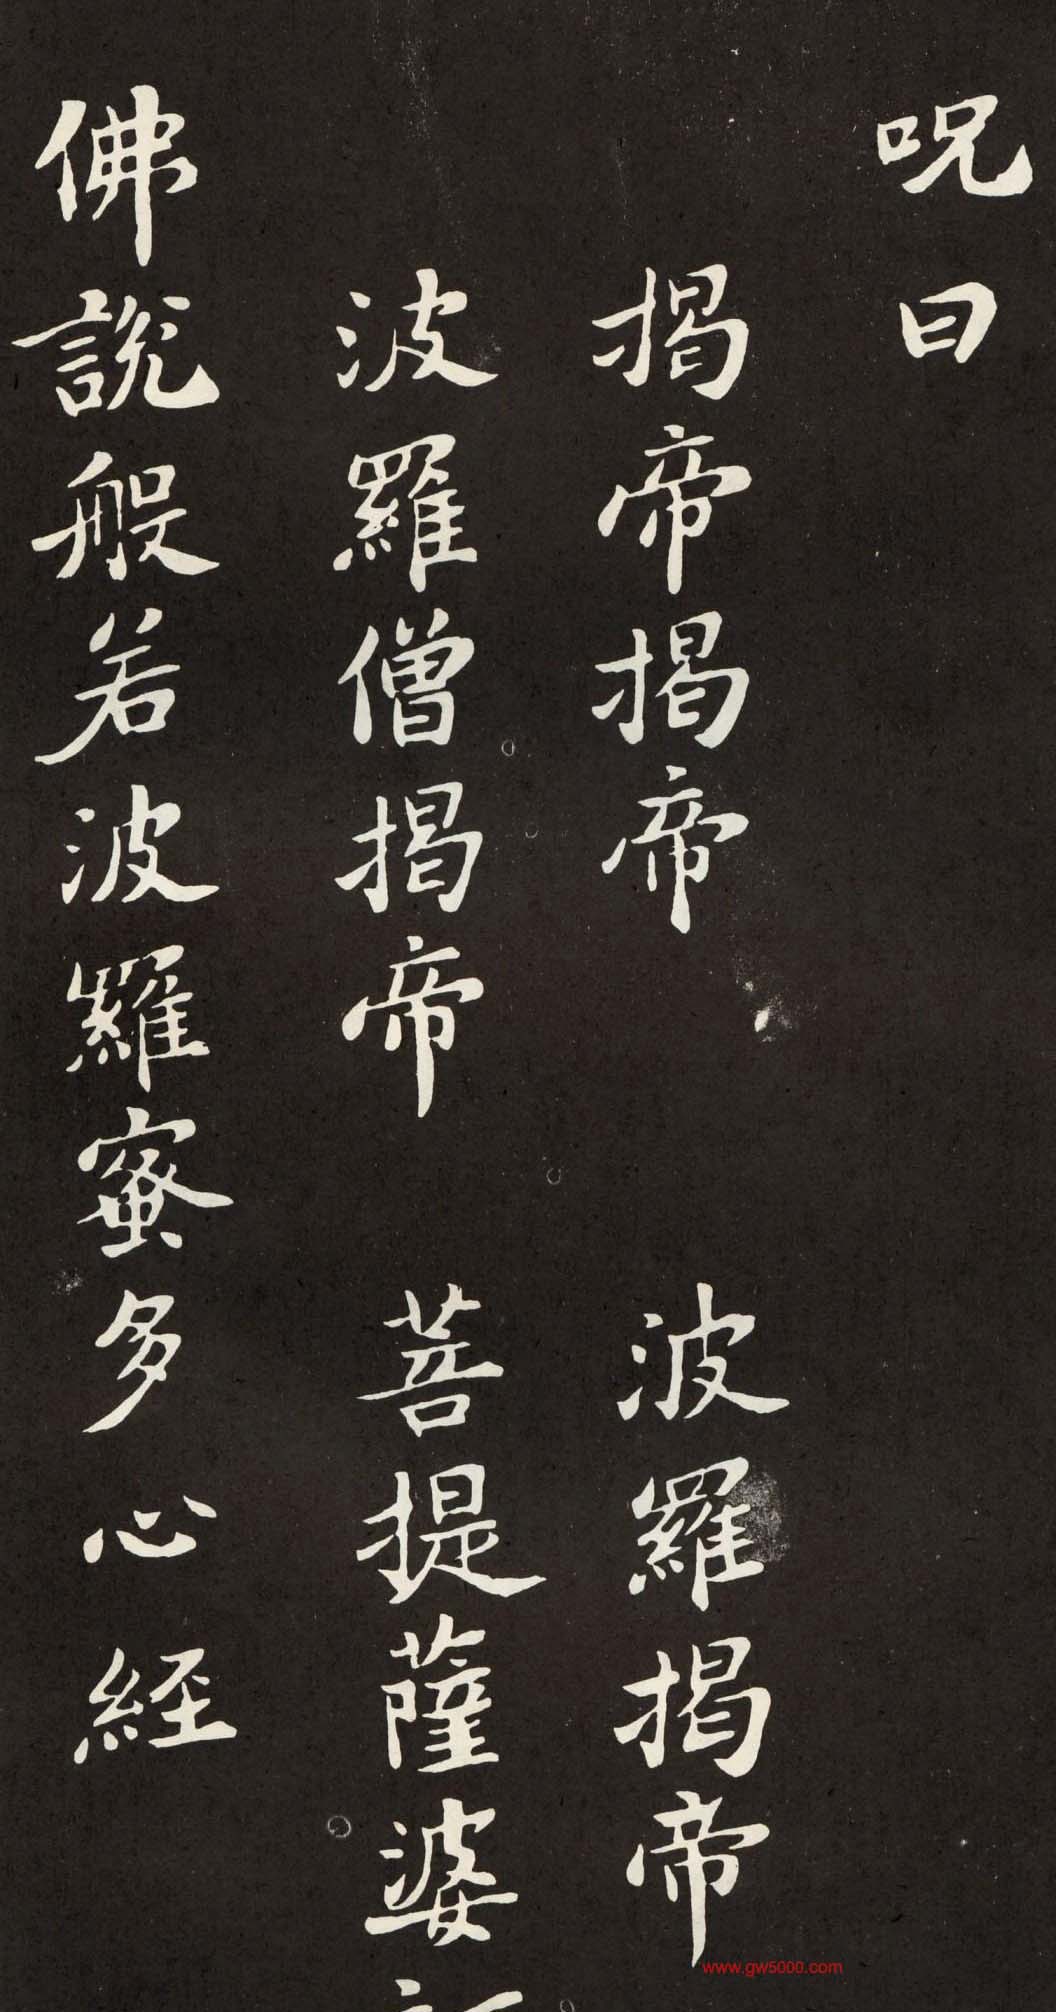 呪曰
揭帝揭帝 波羅揭帝
波羅僧揭帝 菩提薩婆
佛說般若波羅蜜多心經
www.gw5000.com